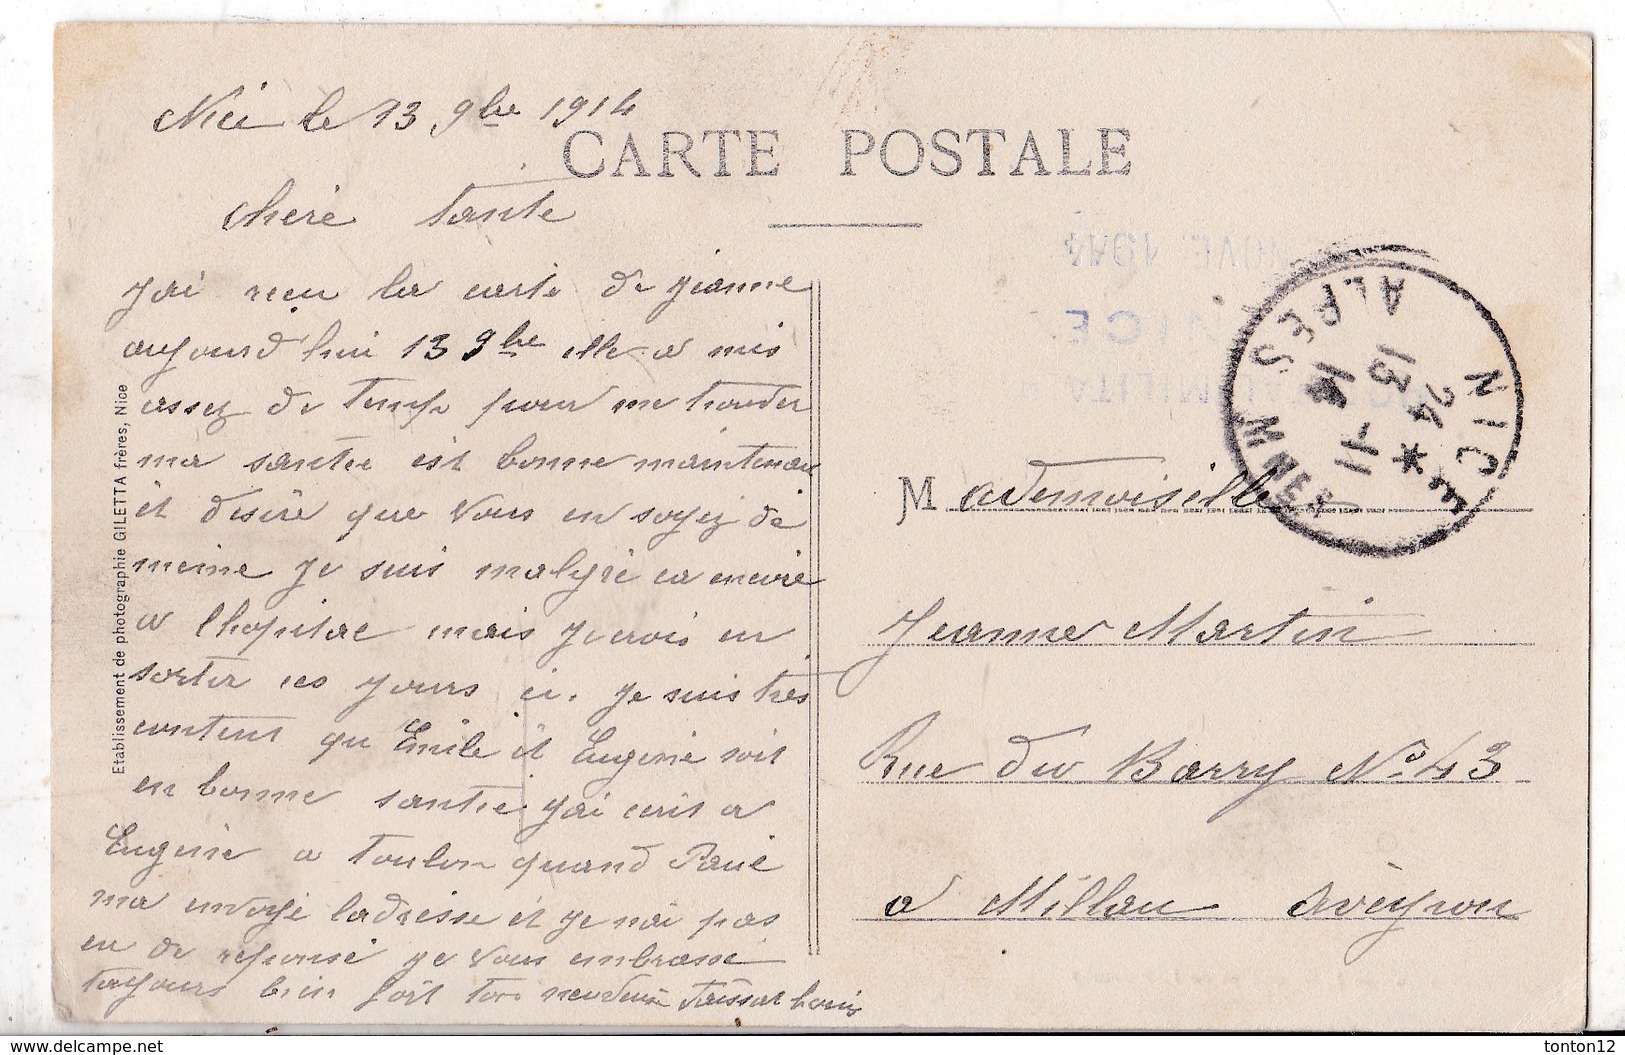 Nice le 13 9bre 1914
CARTE POSTALE
chère tante
j'ai recu la carte de jeanne
aujourd hui 13 9bre elle a mis
assez de temps pour me trouver
ma santée est bonne maintenan
et desire que vous en soyez de
meme je suis malgré ca encore
a lhopital mais je crois en
sortir ces jours ci. je suis tres
content qu Emile et Eugenie soit
en bonne santée j'ai ecrit a
Eugenie a Toulon quand Paul
ma envoyé ladresse et je n'ai pas
eu de reponse je vous embrasse
toujours bien fort ton neveu
Louis
Etablissement de photographie GILETTA frères, Nice
NICE
ALPES MMES
24
13 -11
14
NICE
M ademoiselle
Jeanne Martin
Rue du Barry No 43
a Millau Aveyron
www.delcampe.net
tonton12